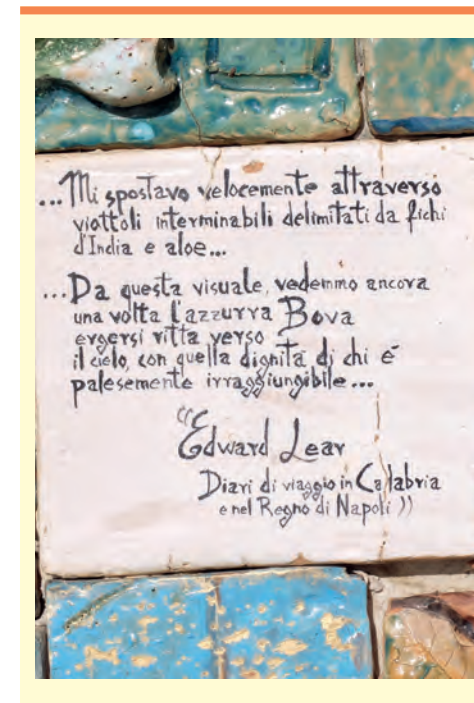 ...Mi spostavo velocemente attraverso
viottoli interminabili delimitati da fichi
d'India e aloe...
...Da questa visuale, vedemmo ancora
una volta l'azzurra Bova
ergersi ritta verso
il cielo, con quella dignità di chi è
palesemente irraggiungibile...
"Edward Lear
Diari di viaggio in Calabria
e nel Regno di Napoli"